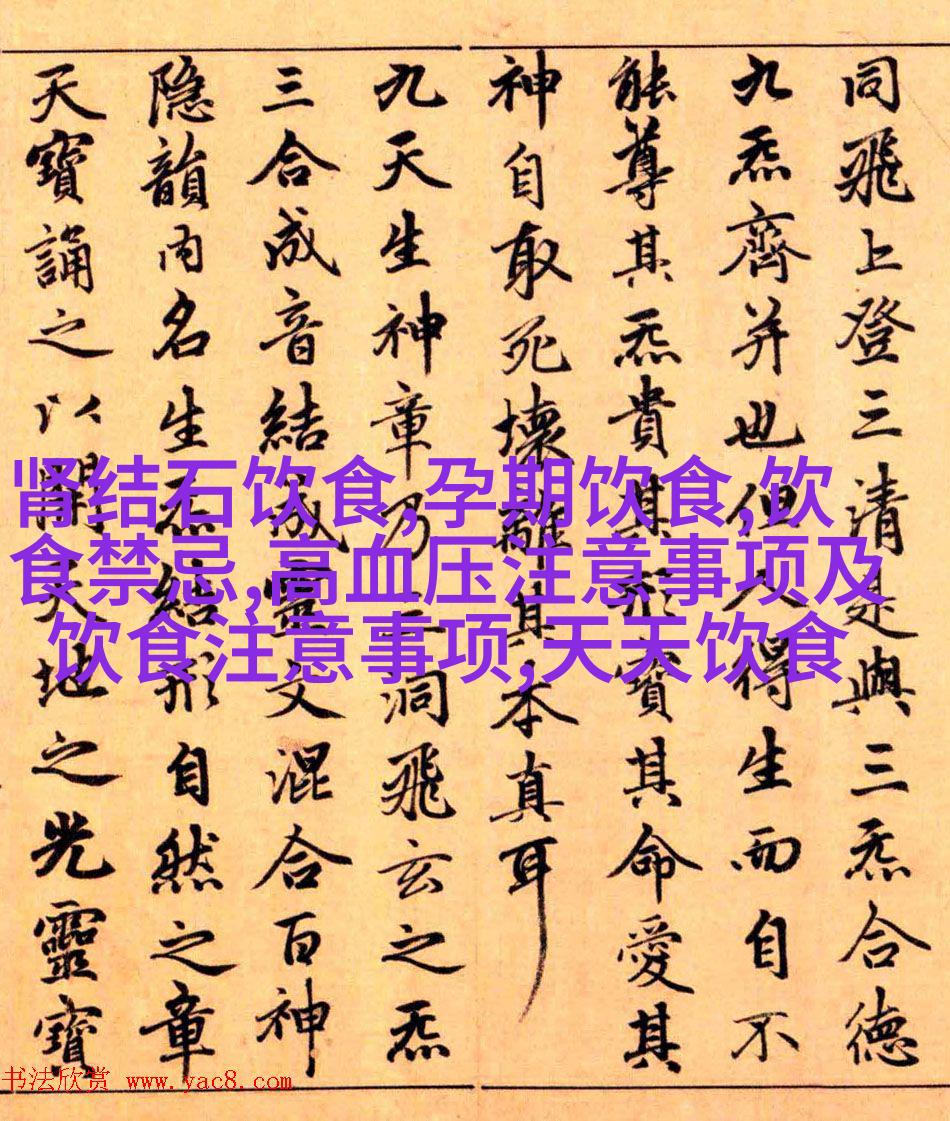 同飛上登三清是與三炁合德
九炁齊并也但人得生而自不
能尊其炁貴其形寳其命愛其
神自取死壞離其本真耳
九天生神章乃三洞飛玄之炁
三合成音結成靈文混合百神
隐韻内名生炁結形自然之章
天寶誦之以開天地之光靈寶
肾结石饮食,孕期饮食,饮
食禁忌,高血压注意事项及
饮食注意事项,天天饮食
书法欣赏 www.yac8.com